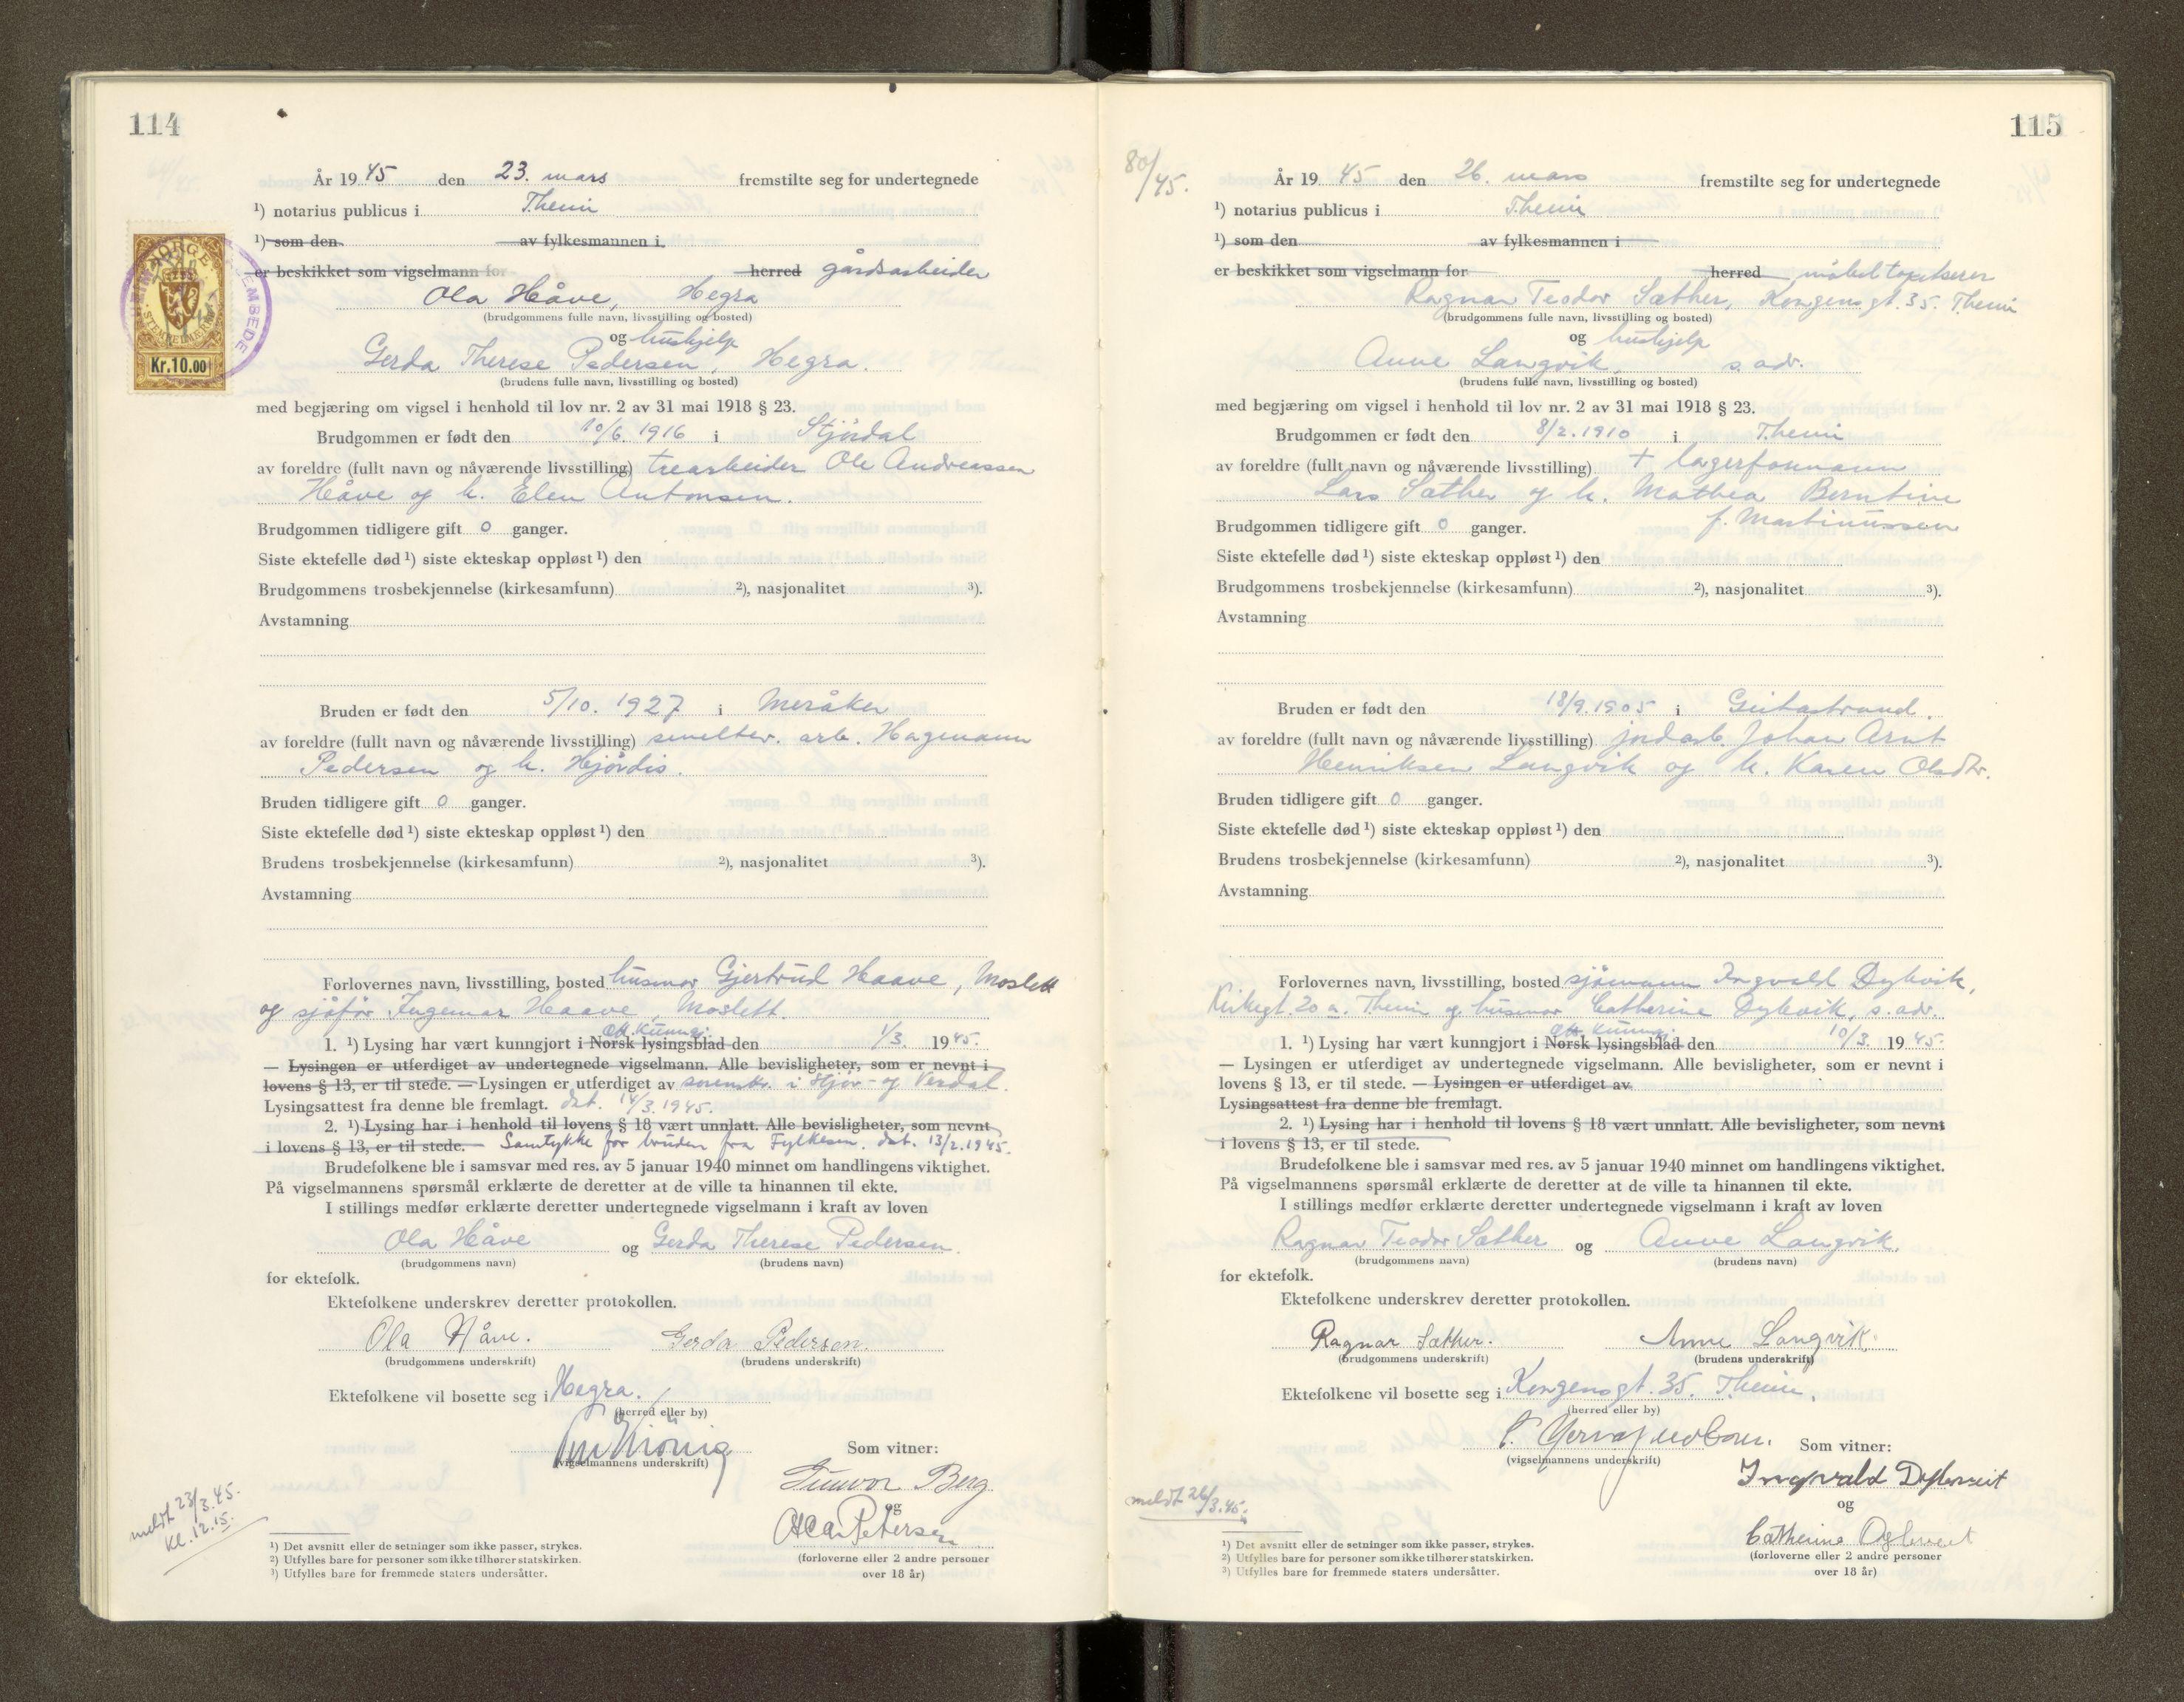 114
År 1945 den 23. mars fremstilte seg for undertegnede
¹) notarius publicus i Thein
¹) som den av fylkesmannen i
er beskikket som vigselmann for herred gårdsarbeider
Ola Håve, Hegra
(brudgommens fulle navn, livsstilling og bosted)
og hushjelp
Gerda Therese Pedersen, Hegra.
(brudens fulle navn, livsstilling og bosted)
Kr.10.00
med begjæring om vigsel i henhold til lov nr. 2 av 31 mai 1918 § 23.
Brudgommen er født den 10/6. 1916 i Stjørdal
av foreldre (fullt navn og nåværende livsstilling) trearbeider Ole Andreassen
Håve og h. Elen Antonsen.
Brudgommen tidligere gift 0 ganger.
Siste ektefelle død ¹) siste ekteskap oppløst ¹) den
Brudgommens trosbekjennelse (kirkesamfunn) ²), nasjonalitet ³).
Avstamning
Bruden er født den 5/10. 1927 i Meråker
av foreldre (fullt navn og nåværende livsstilling) smeltev. arb. Hagmann
Pedersen og h. Hjørdis.
Bruden tidligere gift 0 ganger.
Siste ektefelle død ¹) siste ekteskap oppløst ¹) den
Brudens trosbekjennelse (kirkesamfunn) ²), nasjonalitet ³).
Avstamning
Forlovernes navn, livsstilling, bosted husmor Gjertrud Haave, Moslett
og sjåfør Ingemar Haave, Moslett.
Off. kunngj.
1. ¹) Lysing har vært kunngjort i Norsk lysingsblad den 1/3. 1945.
— Lysingen er utferdiget av undertegnede vigselmann. Alle bevisligheter, som er nevnt i
lovens § 13, er til stede. — Lysingen er utferdiget av sorenskr. i Stjør- og Verdal.
Lysingsattest fra denne ble fremlagt. dat. 14/3.1945.
2. ¹) Lysing har i henhold til lovens § 18 vært unnlatt. Alle bevisligheter, som nevnt
i lovens § 13, er til stede. — Samtykke for bruden fra Fylkesm. dat. 13/2.1945.
Brudefolkene ble i samsvar med res. av 5 januar 1940 minnet om handlingens viktighet.
På vigselmannens spørsmål erklærte de deretter at de ville ta hinannen til ekte.
I stillings medfør erklærte deretter undertegnede vigselmann i kraft av loven
Ola Håve og Gerda Therese Pedersen.
(brudgommens navn) (brudens navn)
for ektefolk.
Ektefolkene underskrev deretter protokollen.
Ola Håve. Gerda Pedersen.
(brudgommens underskrift) (brudens underskrift)
Ektefolkene vil bosette seg i Hegra.
(herred eller by)
Som vitner:
(vigselmannens underskrift)
Gunvor Berg
og
Petersen
(forloverne eller 2 andre personer
over 18 år)
meldt 23/3.45.
Kl. 12.15.
¹) Det avsnitt eller de setninger som ikke passer, strykes.
²) Utfylles bare for personer som ikke tilhører statskirken.
³) Utfylles bare for fremmede staters undersåtter.
115
80/45.
År 1945 den 26. mars fremstilte seg for undertegnede
¹) notarius publicus i Thein
¹) som den av fylkesmannen i
er beskikket som vigselmann for herred møbeltapetserer
Ragnar Teodor Sæther, Kongensgt. 35. Thein
(brudgommens fulle navn, livsstilling og bosted)
og hushjelp
Anne Langvik, s. adr.
(brudens fulle navn, livsstilling og bosted)
med begjæring om vigsel i henhold til lov nr. 2 av 31 mai 1918 § 23.
Brudgommen er født den 8/2.1910 i Thein
av foreldre (fullt navn og nåværende livsstilling) + lagerformann
Lars Sæther og h. Mathea Berntine
f. Martinussen
Brudgommen tidligere gift 0 ganger.
Siste ektefelle død ¹) siste ekteskap oppløst ¹) den
Brudgommens trosbekjennelse (kirkesamfunn) ²), nasjonalitet ³).
Avstamning
Bruden er født den 18/9.1905 i Geitastrand.
av foreldre (fullt navn og nåværende livsstilling) jordarb. Johan Arnt
Henriksen Langvik og h. Karen Olsdtr.
Bruden tidligere gift 0 ganger.
Siste ektefelle død ¹) siste ekteskap oppløst ¹) den
Brudens trosbekjennelse (kirkesamfunn) ²), nasjonalitet ³).
Avstamning
Forlovernes navn, livsstilling, bosted sjømann Ingvald Dybvik,
Kirkegt. 20 a. Thein og husmor Catherine Dybvik, s. adr.
Off. kunngj.
1. ¹) Lysing har vært kunngjort i Norsk lysingsblad den 10/3. 1945.
— Lysingen er utferdiget av undertegnede vigselmann. Alle bevisligheter, som er nevnt i
lovens § 13, er til stede. — Lysingen er utferdiget av
Lysingsattest fra denne ble fremlagt.
2. ¹) Lysing har i henhold til lovens § 18 vært unnlatt. Alle bevisligheter, som nevnt
i lovens § 13, er til stede.
Brudefolkene ble i samsvar med res. av 5 januar 1940 minnet om handlingens viktighet.
På vigselmannens spørsmål erklærte de deretter at de ville ta hinannen til ekte.
I stillings medfør erklærte deretter undertegnede vigselmann i kraft av loven
Ragnar Teodor Sæther og Anne Langvik.
(brudgommens navn) (brudens navn)
for ektefolk.
Ektefolkene underskrev deretter protokollen.
Ragnar Sæther. Anne Langvik.
(brudgommens underskrift) (brudens underskrift)
Ektefolkene vil bosette seg i Kongensgt. 35. Thein.
(herred eller by)
Som vitner:
(vigselmannens underskrift)
Ingvald Dybvik
og
Catherine Dybvik
(forloverne eller 2 andre personer
over 18 år)
meldt 26/3.45.
¹) Det avsnitt eller de setninger som ikke passer, strykes.
²) Utfylles bare for personer som ikke tilhører statskirken.
³) Utfylles bare for fremmede staters undersåtter.